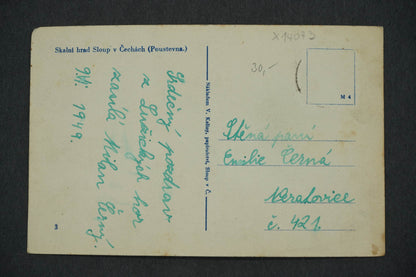 Skalní hrad Sloup v Čechách (Poustevna.)
Srdečný pozdrav
z Lužických hor
zasílá Milan Černý.
9.VI. 1949.
3
Nákladem V. Kallup, papírnictví, Sloup v Č.
X14073
30,-
M 4
Ctěná paní
Emilie Černá
Neratovice
č. 421.